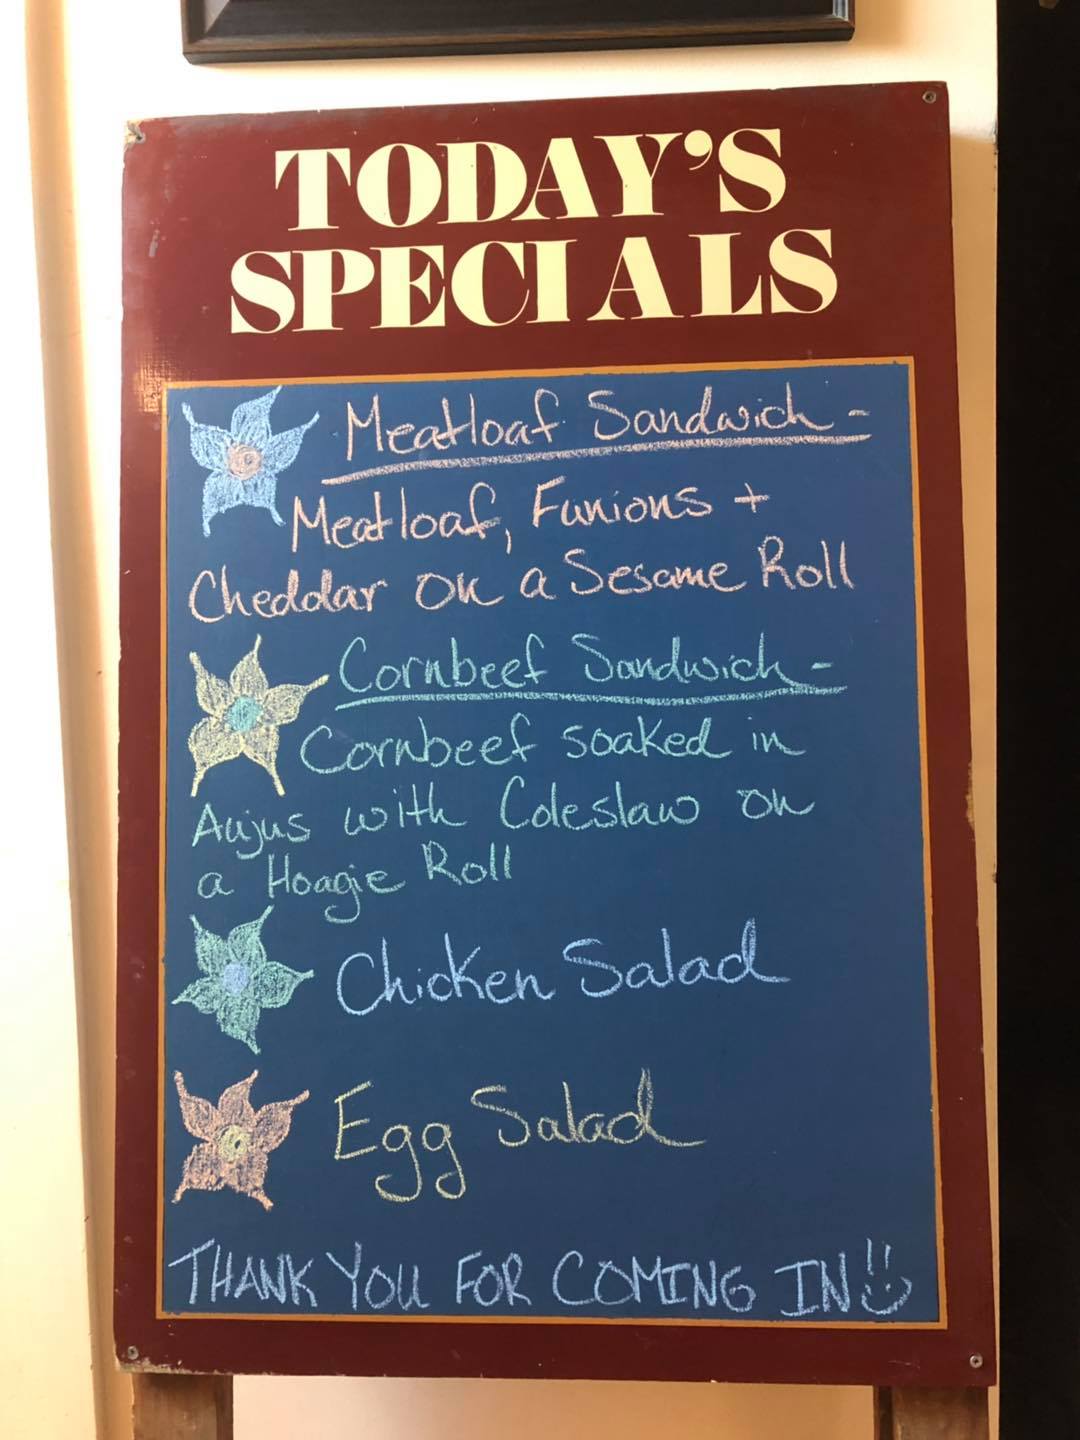 TODAY'S
SPECIALS
Meatloaf Sandwich -
Meatloaf, Funions +
Cheddar on a Sesame Roll
Cornbeef Sandwich -
Cornbeef soaked in
Aujus with Coleslaw on
a Hoagie Roll
Chicken Salad
Egg Salad
THANK YOU FOR COMING IN!!